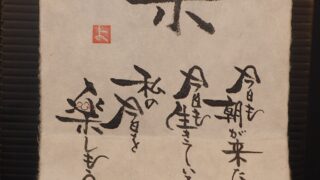 今日も
朝が来た
今日も
生きている
私の
今日を
楽しもう